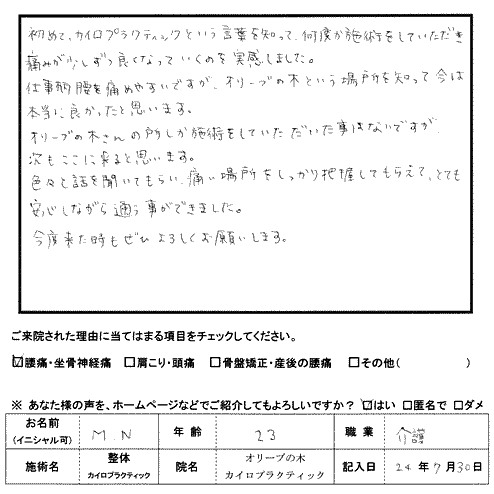 初めて、カイロプラクティックという言葉を知って、何度か施術をしていただき
痛みが少しずつ良くなっていくのを実感しました。
仕事柄腰を痛めやすいですが、オリーブの木という場所を知って今は
本当に良かったと思います。
オリーブの木さんの所しか施術をしていただいた事はないですが、
次もここに来ると思います。
色々と話を聞いてもらい、痛い場所をしっかり把握してもらえて、とても
安心しながら通う事ができました。
今度来た時もぜひよろしくお願いします。
ご来院された理由に当てはまる項目をチェックしてください。
☑腰痛・坐骨神経痛 □肩こり・頭痛 □骨盤矯正・産後の腰痛 □その他( )
※ あなた様の声を、ホームページなどでご紹介してもよろしいですか? ☑はい □匿名で □ダメ
お名前(イニシャル可) M.N 年齢 23 職業 介護
施術名 整体 カイロプラクティック 院名 オリーブの木 カイロプラクティック 記入日 24年7月30日